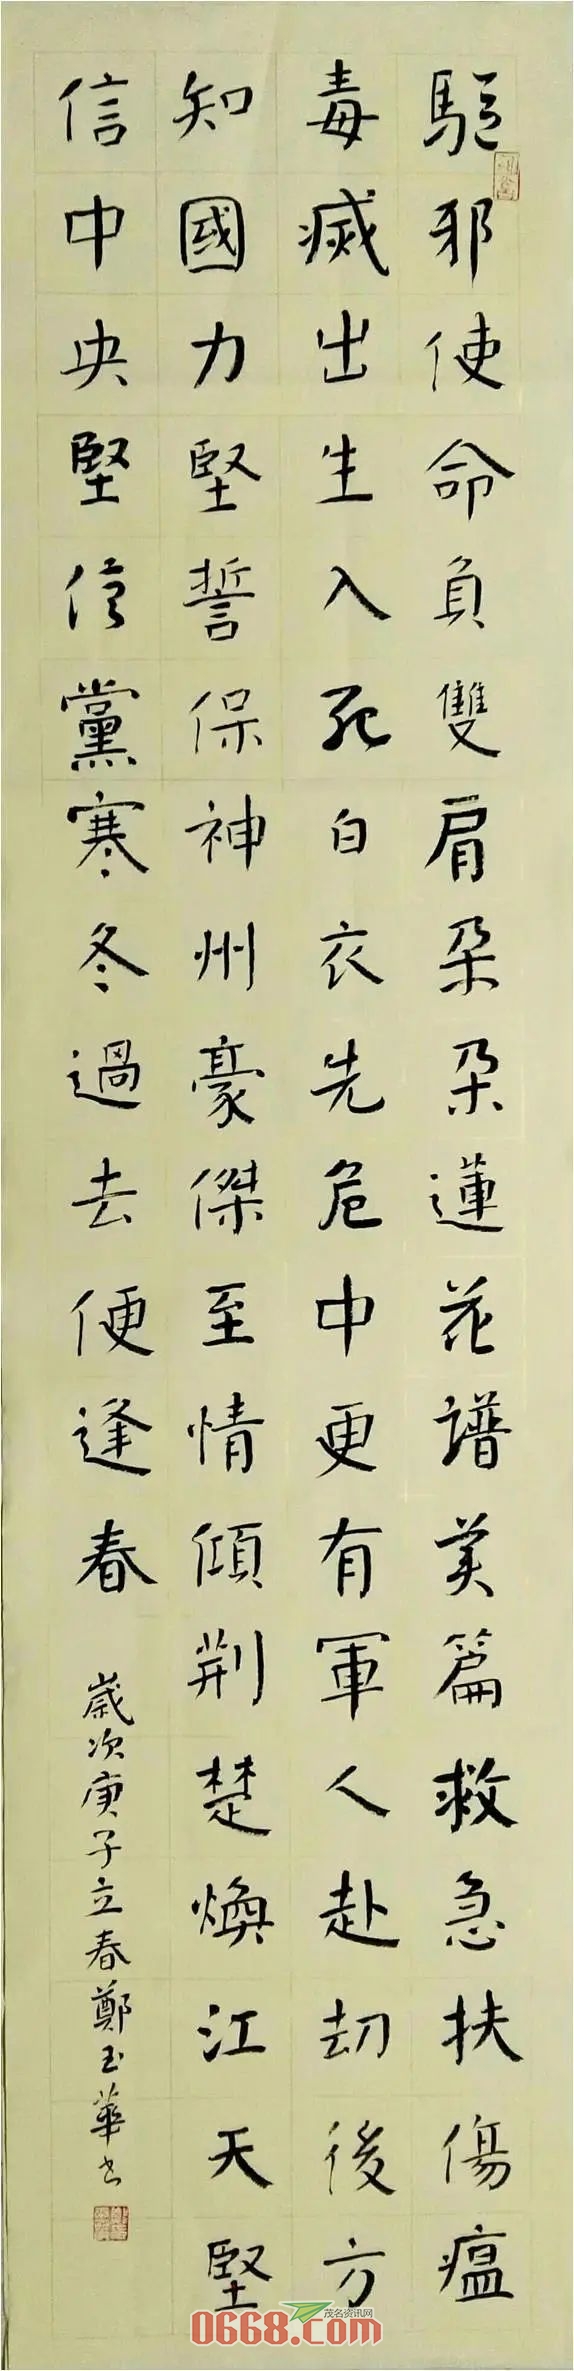 驅邪使命負雙肩朵朵蓮花譜美篇救急扶傷瘟
毒滅出生入死白衣先危中更有軍人赴劫後方
知國力堅誓保神州豪傑至情傾荆楚煥江天堅
信中央堅信黨寒冬過去便逢春
歲次庚子立春鄭玉華书
茂名资讯网
0668.com